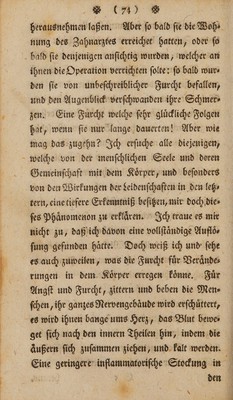 * ( 74 ) *
herausnehmen laßen. Aber so bald sie die Woh-
nung des Zahnarztes erreichet hatten, oder so
bald sie denjenigen ansichtig wurden, welcher an
ihnen die Operation verrichten solte: so bald wur-
den sie von unbeschreiblicher Furcht befallen,
und den Augenblick verschwanden ihre Schmer-
zen. Eine Furcht welche sehr glückliche Folgen
hat, wenn sie nur lange dauerten! Aber wie
mag das zugehn? Ich ersuche alle diejenigen,
welche von der menschlichen Seele und deren
Gemeinschaft mit dem Körper, und besonders
von den Wirkungen der Leidenschaften in den letz-
tern, eine tiefere Erkenntniß besitzen, mir doch die-
ses Phänomenon zu erklären. Ich traue es mir
nicht zu, daß ich davon eine vollständige Auflö-
sung gefunden hätte. Doch weiß ich und sehe
es auch zuweilen, was die Furcht für Verände-
rungen in dem Körper erregen könne. Für
Angst und Furcht, zittern und beben die Men-
schen, ihr ganzes Nervengebäude wird erschüttert,
es wird ihnen bange ums Herz, das Blut bewe-
get sich nach den innern Theilen hin, indem die
äußern sich zusammen ziehen, und kalt werden.
Eine geringere inflammatorische Stockung in
den